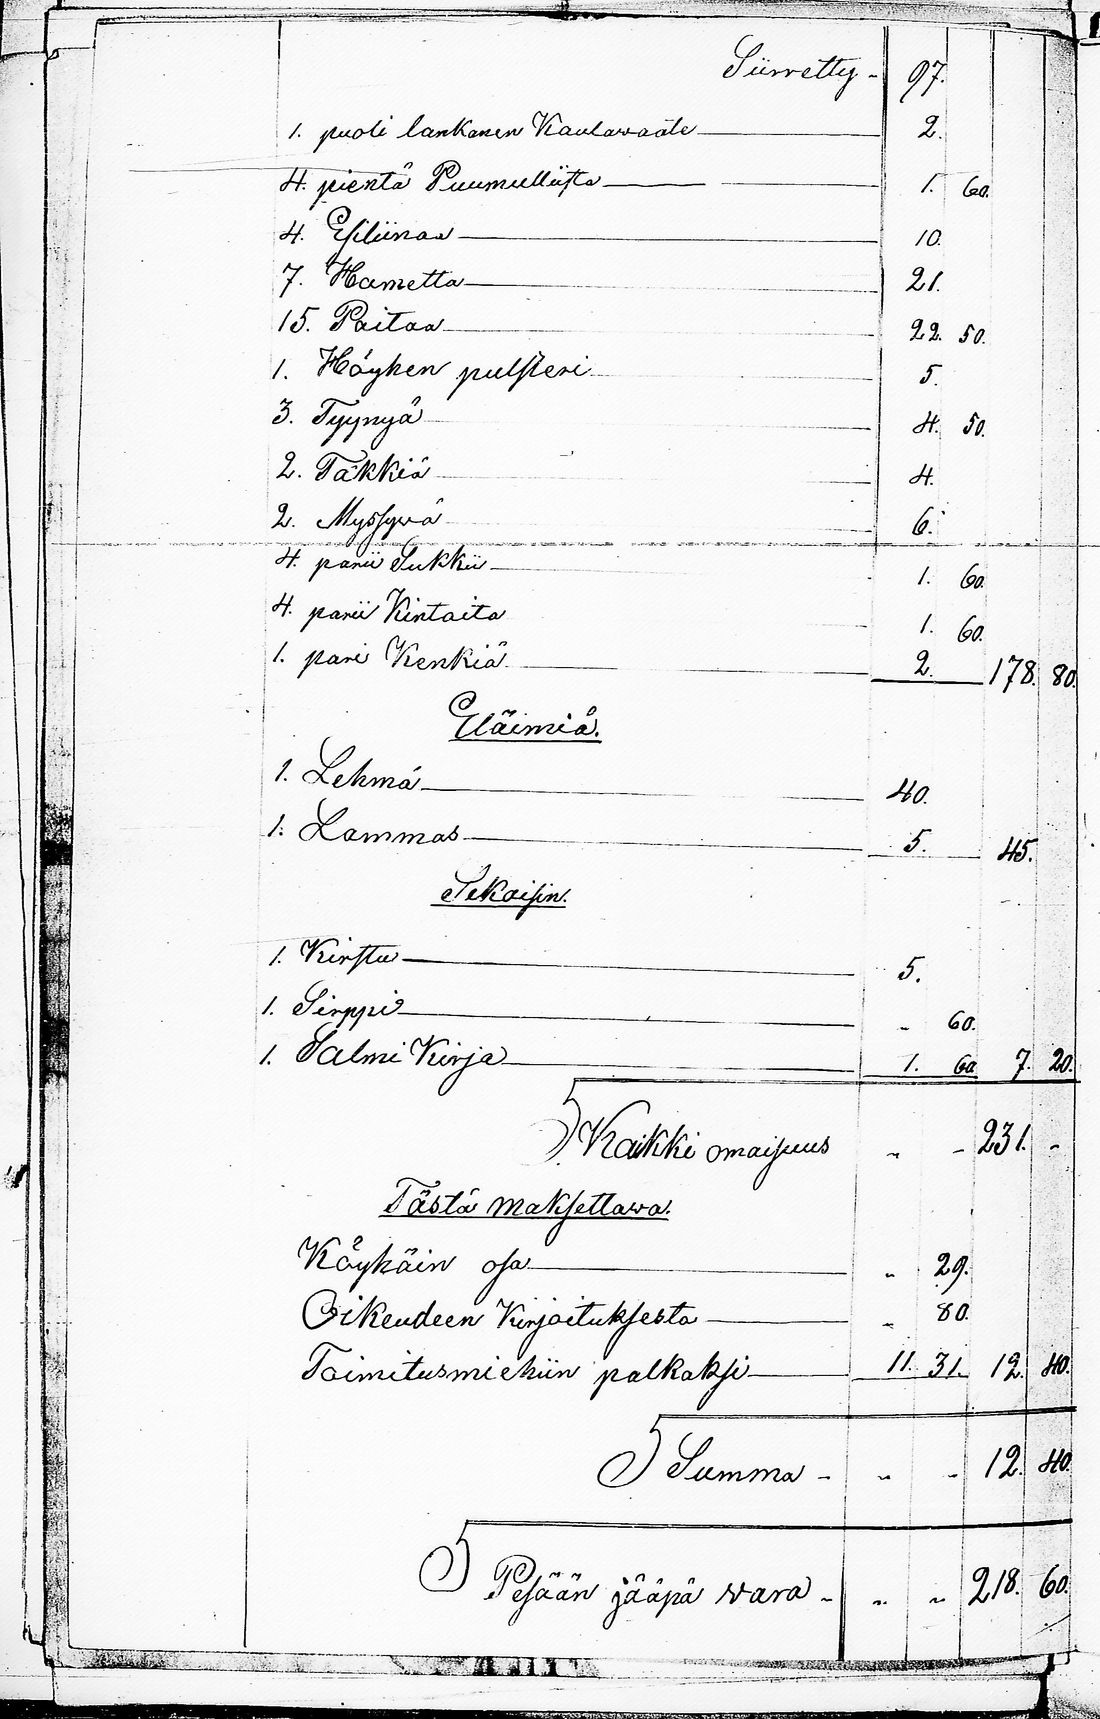 Siirretty - 97.
1. puoli lankanen Kaulawaate 2.
4. pientä Puumulliista 1. 60.
4. Esiliinaa 10.
7. Hametta 21.
15. Paitaa 22. 50.
1. Höyhen pulsteri 5.
3. Tyynyä 4. 50.
2. Täkkiä 4.
2. Myssywä 6.
4. parii Sukkii 1. 60.
4. parii Kintaita 1. 60.
1. pari Kenkiä 2. 178. 80.
Eläimiä.
1. Lehmä 40.
1. Lammas 5. 45.
Sekaisin.
1. Kirstu 5.
1. Sirppi " 60.
1. Salmi Kirja 1. 60 7. 20.
Kaikki omaisuus " - 231. -
Tästä maksettawa.
Köyhäin osa " 29.
Oikeudeen Kirjoituksesta " 80.
Toimitusmiehiin palkaksi 11. 31. 12. 40.
Summa - " - 12. 40.
Pesään jääpä wara - " " 218. 60.